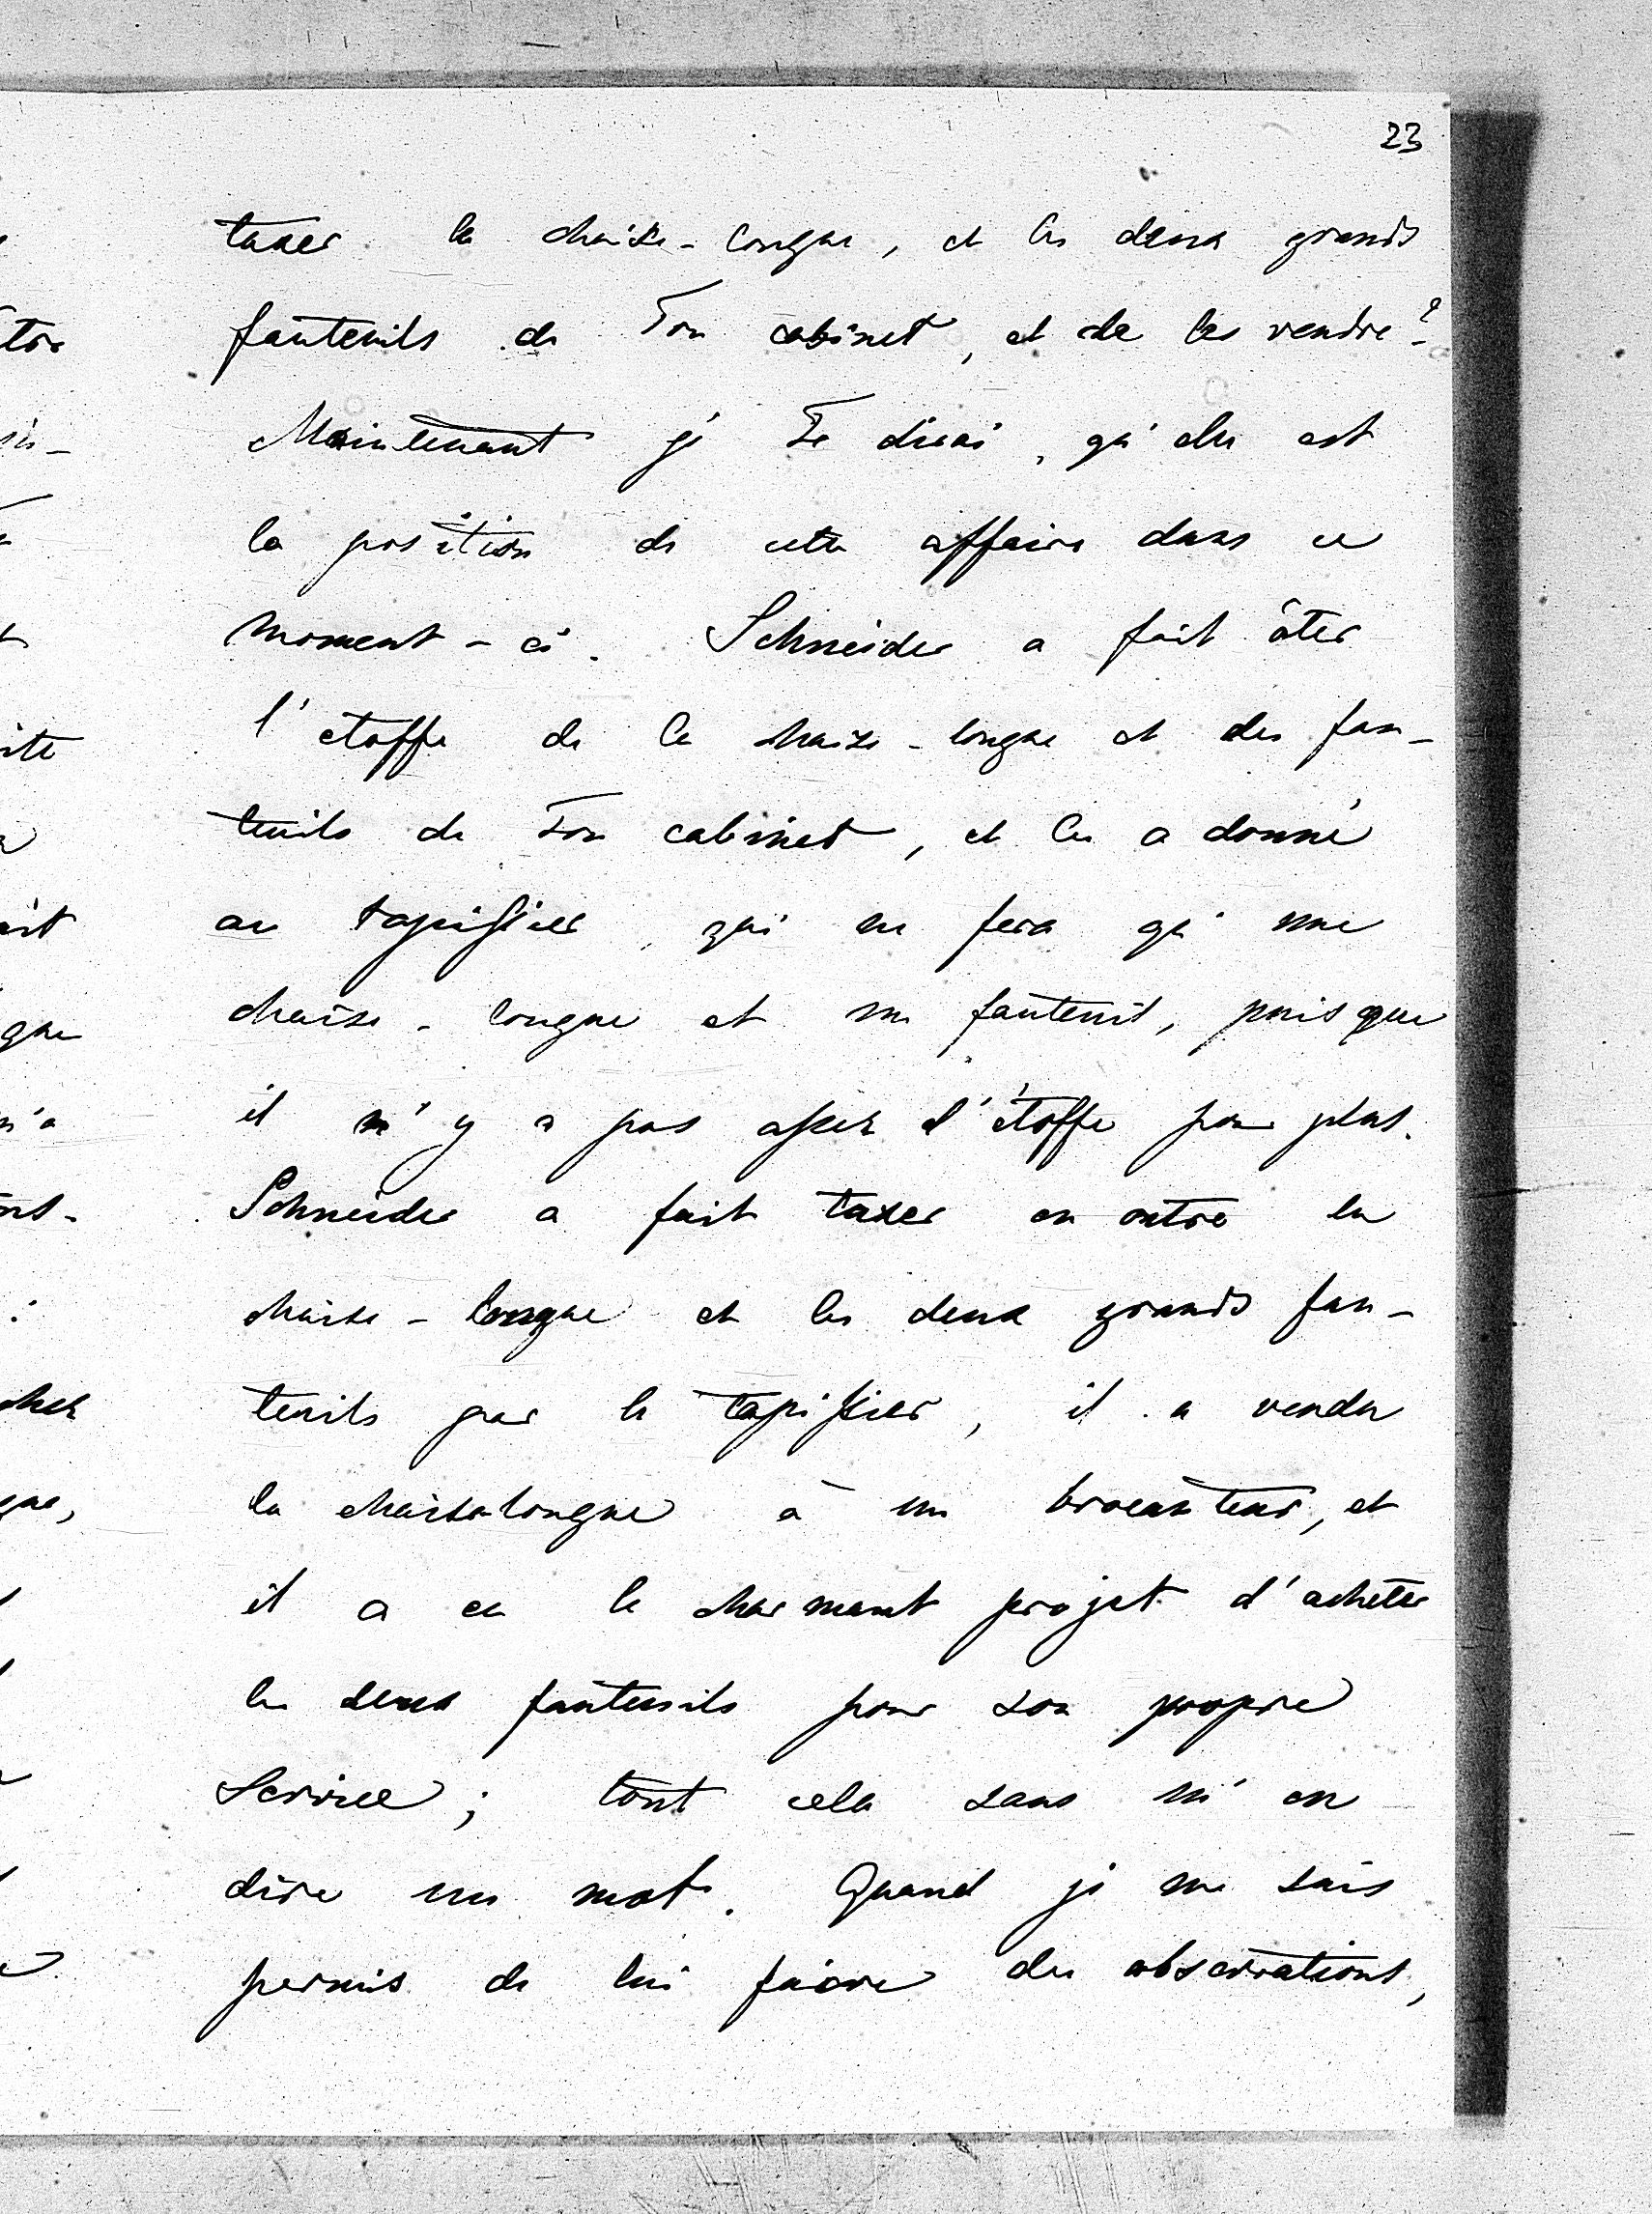 23
taxer la chaise-longue, et les deux grands
fauteuils de Ton cabinet, et de les vendre?
Maintenant je Te dirai, qu'elle est
la position de cette affaire dans ce
moment-ci. Schneider a fait ôter
l'étoffe de la chaise-longue et des fau-
teuils de Ton cabinet, et les a donné
au tapissier, qui ne fera qu'une
chaise-longue et un fauteuil, puisque
il n'y a pas assez d'étoffe pour plus.
Schneider a fait taxer en outre la
chaise-longue et les deux grands fau-
teuils par le tapissier, il a vendu
la chaise-longue à un brocanteur, et
il a eu le charmant projet d'acheter
les deux fauteuils pour son propre
service; tout cela sans m'en
dire un mot. Quand je me suis
permis de lui faire des observations,